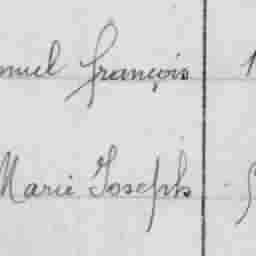 nuel François 1
Marie Joseph